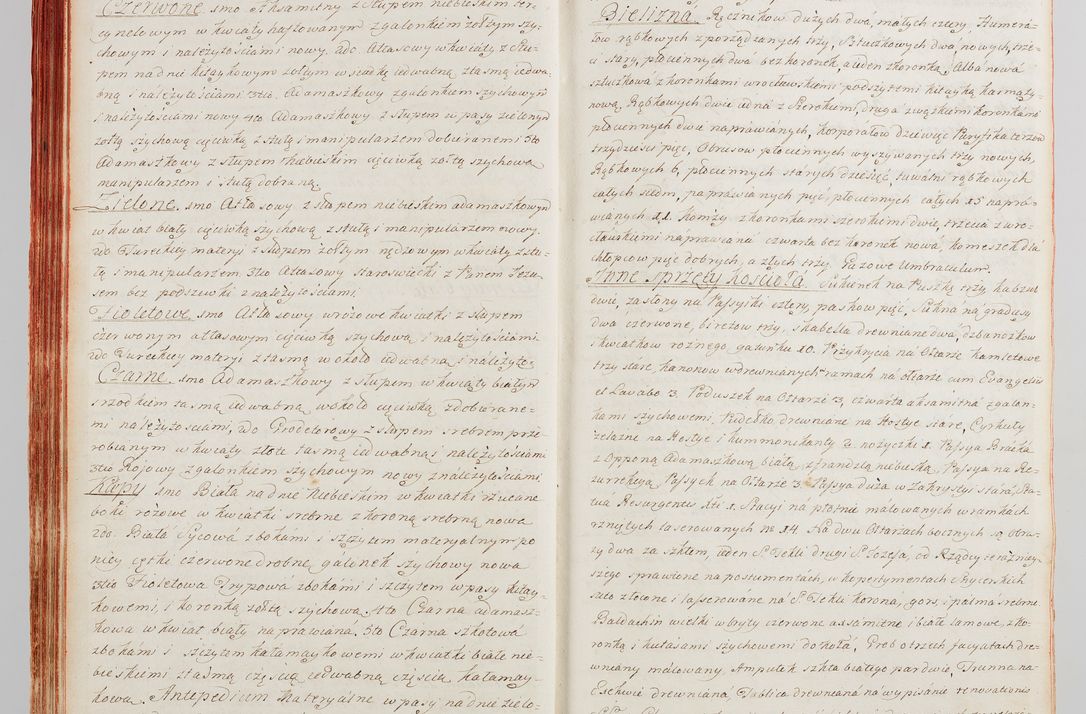 Czerwone. 1mo Axamitny z słupem niebieskim ter-
cynelowym w kwiaty haftowanym z galonkiem żółtym szy-
chowym i należytościami nowy. 2do Attasowy w kwiaty z słu-
pem na dnie kitaykowym żółtym w siadkę iedwabną z tasmą iedwa-
bną i należytościami 3tio. Adamaszkowy z galonkiem szychowym
i należytościami nowy 4to Adamaszkowy z słupem w pasy zielonym
żółtą szychową cyciwką z stułą i manipularzem dobieranemi 5to
Adamaszkowy z słupem niebieskim cyciwką żółtą szychową
manipularzem i stułą dobraną.
Zielone. 1mo Attasowy z słupem niebieskim adamaszkowym
w kwiat biały cyciwką szychową z stułą i manipularzem nowy.
2do Tureckiey materyi z słupem żółtym w kwiaty z stu-
łą i manipularzem 3tio Attasowy staroswiecki z Panem Jezu-
sem bez podszewki z należytościami.
Fioletowe. 1mo Attasowy w różowe kwiatki z słupem
czerwonym attasowym cyciwką szychową i należytościami
2do Tureckiey materyi z tasmą w około iedwabną i należyto:
Czarne. 1mo Adamaszkowy z słupem w kwiaty białym
srzodkiem tasmą iedwabną wokoło cyciwką z dobierane-
mi należytościami, 2do Grodetorowy z słupem srebrem prze-
robianym w kwiaty złote tasmą iedwabną i należytościami
3tio Kojowy z galonkiem szychowym nowy z należytościami
Kapy 1mo Biała na dnie niebieskim w kwiatki rzucane
boki różowe w kwiatki srebrne z koroną srebrną nowa
2do. Biała Cycowa z bokami i szczytem materyalnym po
niey cętki czerwone drobne galonek szychowy nowa
3tio Fioletowa Trypowa z bokami i szczytem w pasy kitay-
kowemi, i koronką żółtą szychową. 4to Czarna adamasz-
kowa w kwiat biały naprawiana. 5to Czarna szkotowa
z bokami i szczytem kałamaykowemi w kwiatki białe nie-
bieskiemi z tasmą częścią iedwabną częścią kałamay-
kową. Antepedium Materyalne w pasy na dnie zielo-
Bielizna. Ręczników dużych dwa, małych cztery, Humera-
łow rąbkowych z porządzanych trzy, Sztuczkowych dwa, nowych, trze-
ci stary, płociennych dwa bez koronek, a ieden z koronką, Alba nowa
sztuczkowa z koronkami wrocławskiemi podszytemi kitayką karmazy-
nową, Rąbkowych dwie iedna z szerokiemi, druga z wązkiemi koronkami
płociennych dwa naprawianych, korporałow dziewięć Puryfikaterzow
trzydzieści pięć, Obrusow płociennych wyszywanych trzy nowych,
Rąbkowych 6, płociennych starych dziesięć, tuwalni rąbkowych
całych siedm, naprawianych pięć płociennych całych 15 napra-
wianych 11. Komży z koronkami szerokiemi dwie, trzecia z wro-
cławskiemi naprawiana czwarta bez koronek nowa, komeszek dla
chłopcow pięć dobrych, a złych trzy. Pazowe Umbraculum.
Inne sprzęty kościoła. Sukienek na Puszki trzy, ha bzut
dwie, zasłony na Passyiki cztery, paskow pięć, Sukna na gradusy
dwa czerwone, biretow trzy, skabella drewniane dwa, dzbanszkow
i kwiatkow rożnego gatunku 10. Przykrycia na Ołtarze kamletowe
trzy stare, kanonow w drewnianych ramach na ołtarze cum Evangeliis
et Lavabo 3. Poduszek na Ołtarze 3, czwarta aksamitna z galon-
kami szychowemi. Pudełko drewniane na Hostye stare, Cyrkuty
żelazne na Hostye i kummonikanty 2. nożyczki 1. Passya Bracka
z Opponą Adamaszkową białą, z frandzlą niebieską, Passya na Re-
zurrekcyą Passyek na Ołtarze 3 Passya duża w Zakrystyi stara, Sta-
tua Resurgentis Xti 1. Stacyi na płotnie malowanych w ramkach
rzniętych laserowanych Nr 14. Na dwu Ołtarzach bocznych są obra-
zy dwa za szkłem, ieden S. Tekli drugi S. Jozefa, od Rządcy tereźniey-
szego sprawione na postumentach, w kopertymentach snycerskich
suto złocone i laserowane na S. Tekli korona, gors, i palma srebrne
Baldachin wielki w bryty czerwone axsamitne i białe lamowe, z ko-
ronką i kutasami szychowemi do koła, Prob o trzech facyatach dre-
wniany malowany. Ampułek szkła białego par dwie, Trunna na
Exekwie drewniana Tablica drewniana na wypisanie renovationis